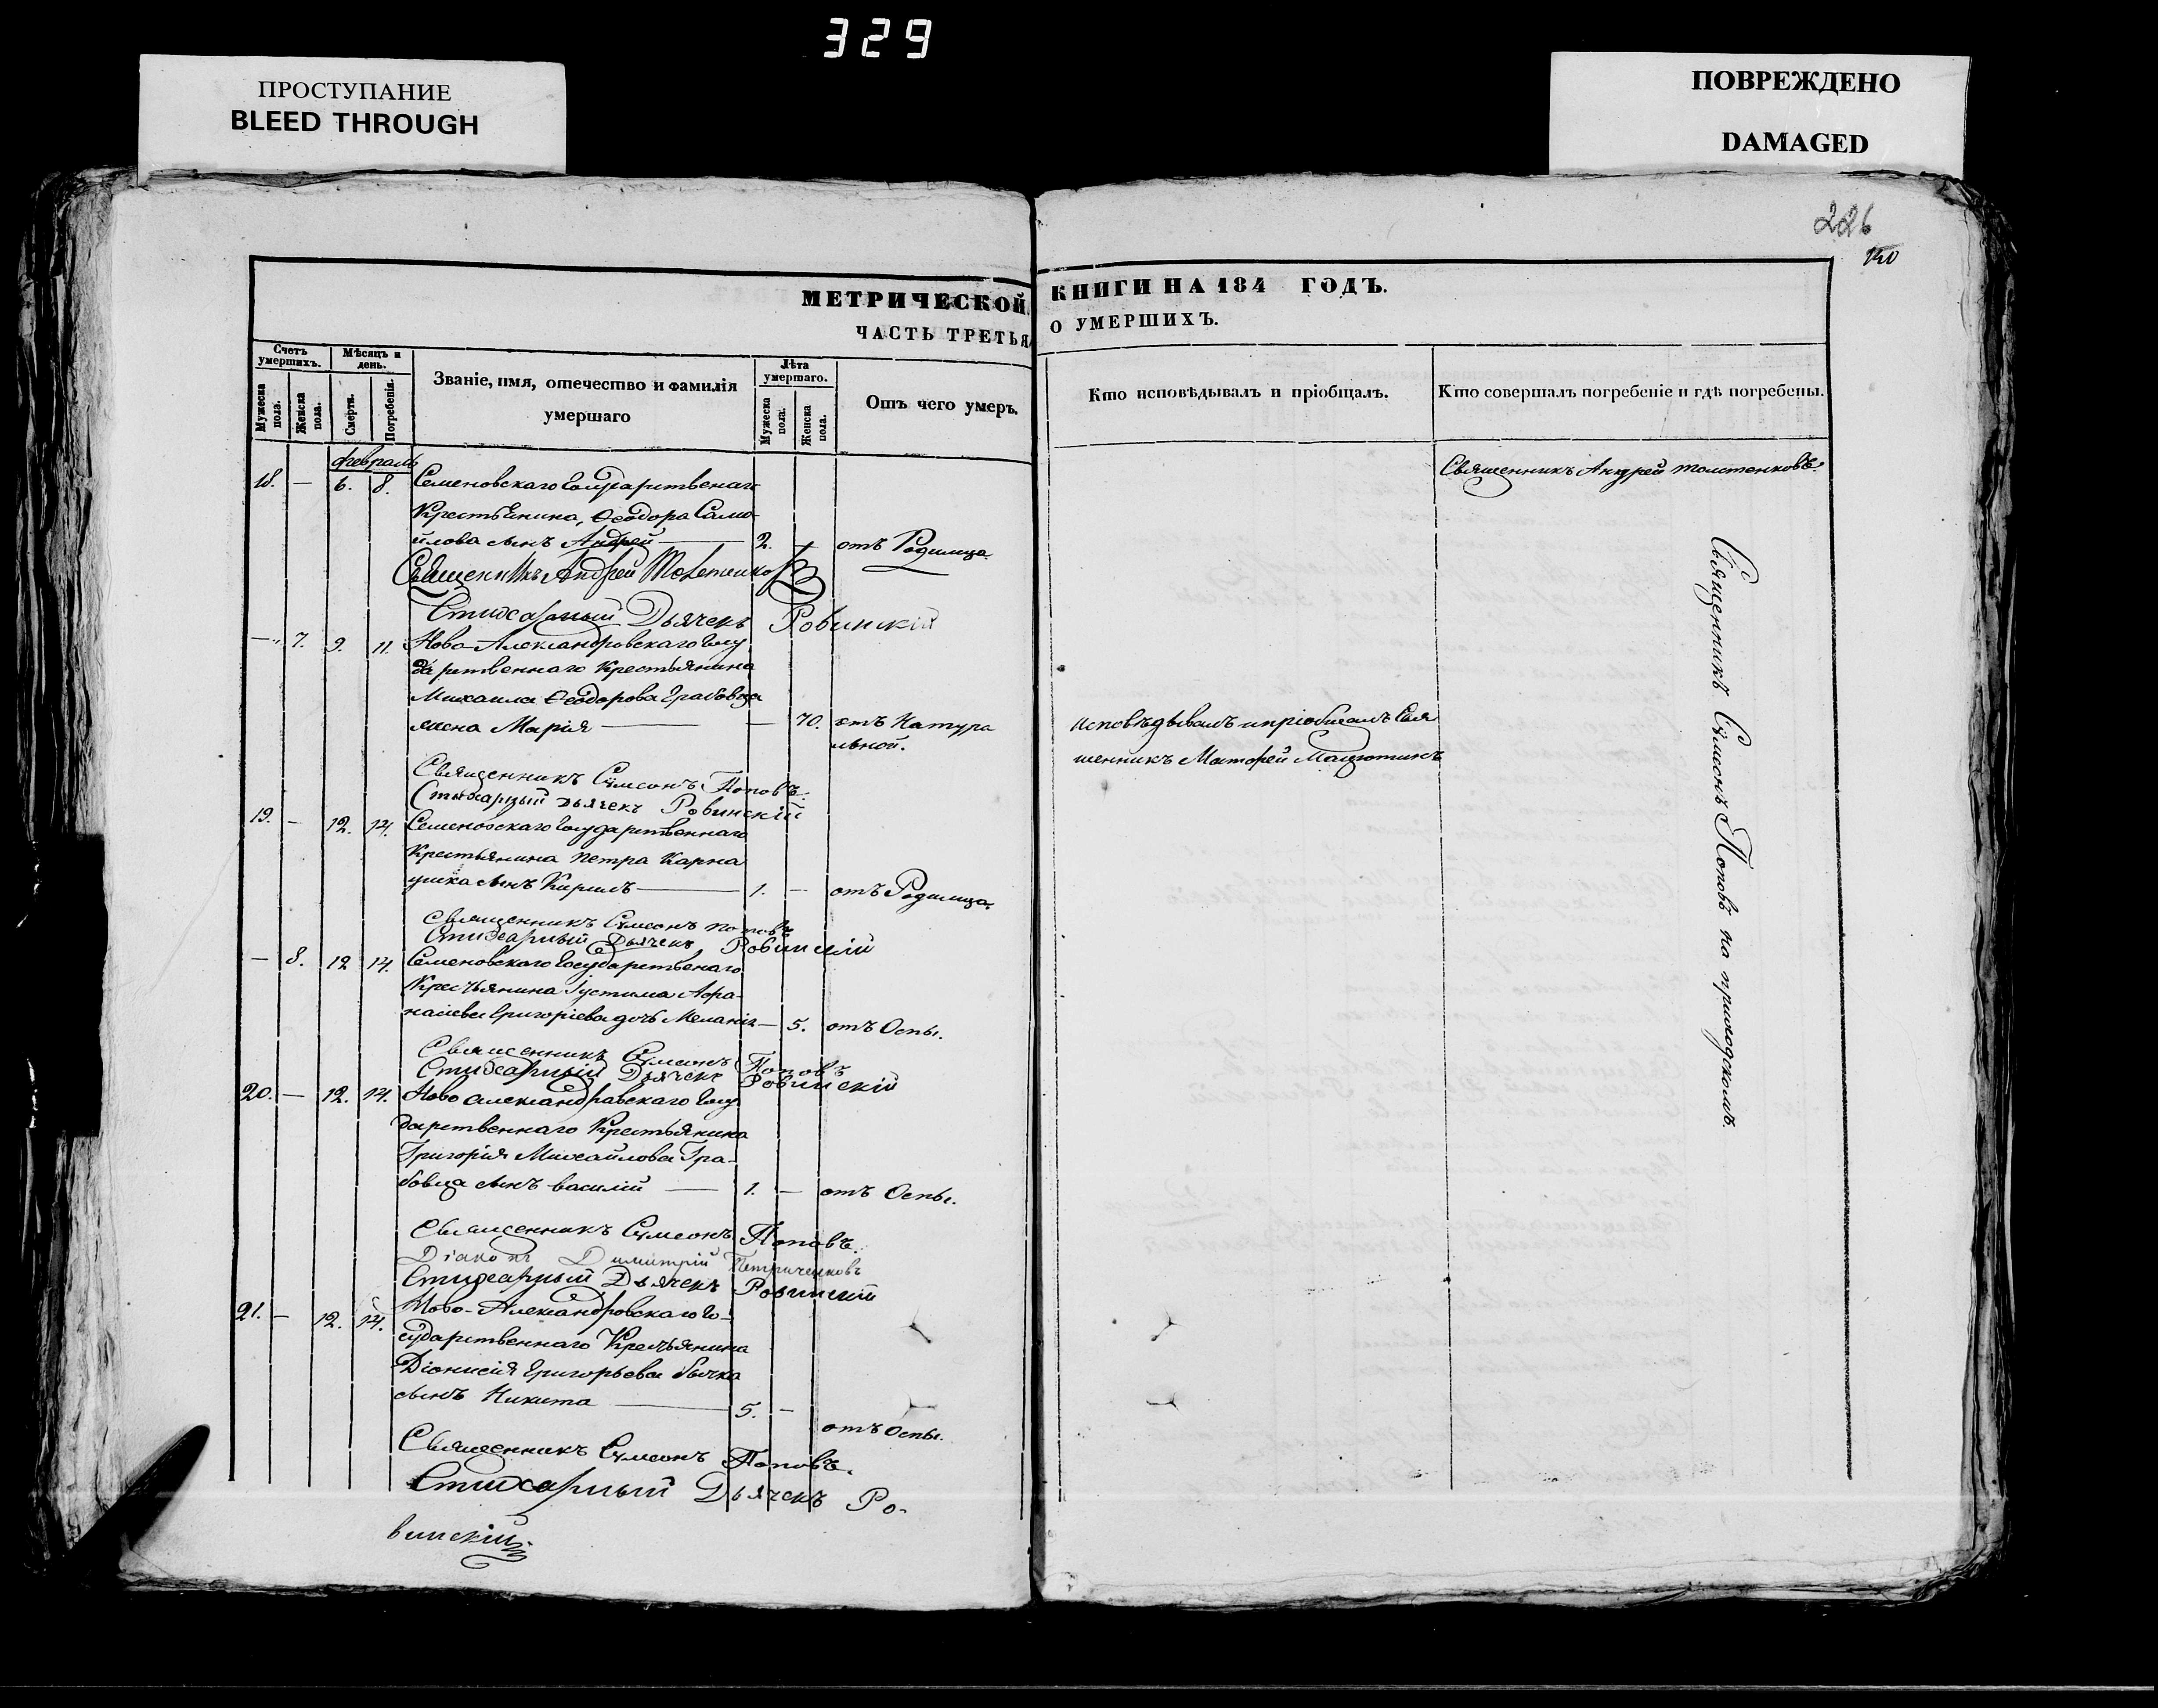 329
ПРОСТУПАНИЕ
BLEED THROUGH
ПОВРЕЖДЕНО
DAMAGED
226
150
МЕТРИЧЕСКОЙ КНИГИ НА 184 ГОДЪ.
ЧАСТЬ ТРЕТЬЯ О УМЕРШИХЪ.
Счетъ умершихъ.
Мужеска пола.
Женска пола.
Мѣсяцъ и день.
Смерти.
Погребенія.
Званіе, имя, отечество и фамилія умершаго
Лѣта умершаго.
Мужеска пола.
Женска пола.
Отъ чего умеръ.
Кто исповѣдывалъ и пріобщалъ.
Кто совершалъ погребеніе и гдѣ погребены.
Февраль
18. — 6. 8. Семеновскаго Государственаго
Крестьянина, Ѳеодора Само-
йлова сынъ Андрей — 2. — отъ Родимца.
Священникъ Андрей Толстенковъ
Священникъ Андрей Толстенковъ
Стихарный Дьячекъ Ровинскій
— 7. 9. 11. Ново-Александровскаго Госу
дарственнаго Крестьянина
Михаила Ѳеодорова Грабовца
жена Марія — — 70. отъ Натура
льной.
Исповѣдывалъ и пріобщалъ Свя
щенникъ Матфей
Священникъ Сѵмеонъ Поповъ.
Стихарный Дьячекъ Ровинскій
19. — 12. 14. Семеновскаго Государственнаго
Крестьянина Петра Карна
ушка сынъ Кирилъ — 1. — отъ Родимца.
Священникъ Сѵмеонъ Поповъ
Стихарный Дьячекъ Ровинскій
— 8. 12 14. Семеновскаго Государственаго
Крестьянина Іустима Аѳа-
насіева Григоріева дочь Меланія — 5. отъ Оспы.
Священникъ Сѵмеонъ Поповъ
Стихарный Дьячекъ Ровинскій
20. — 12. 14. Ново Александравскаго Госу
дарственнаго Крестьянина
Григорія Михайлова Гра-
бовца сынъ Василій — 1. — отъ Оспы.
Священникъ Сѵмеонъ Поповъ.
Діаконъ Димитрій Петриченковъ
Стихарный Дьячекъ Ровинскій
21. — 12. 14. Ново-Александровскаго Го-
сударственнаго Крестьянина
Діонисія Григорьева Бычка
сынъ Никита — 5. —
отъ Оспы.
Священникъ Сѵмеонъ Поповъ.
Стихарный Дьячекъ Ро-
винскій
Священникъ Сѵмеонъ Поповъ на приходскомъ.